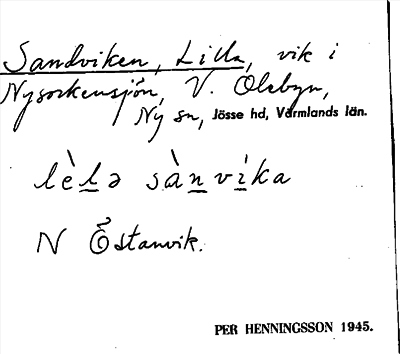 Sandviken, Lilla, vik i
Nysockensjön, V. Olebyn,
Ny sn, Jösse hd, Värmlands län.
lèlə sànvika
N Östanvik.
PER HENNINGSSON 1945.